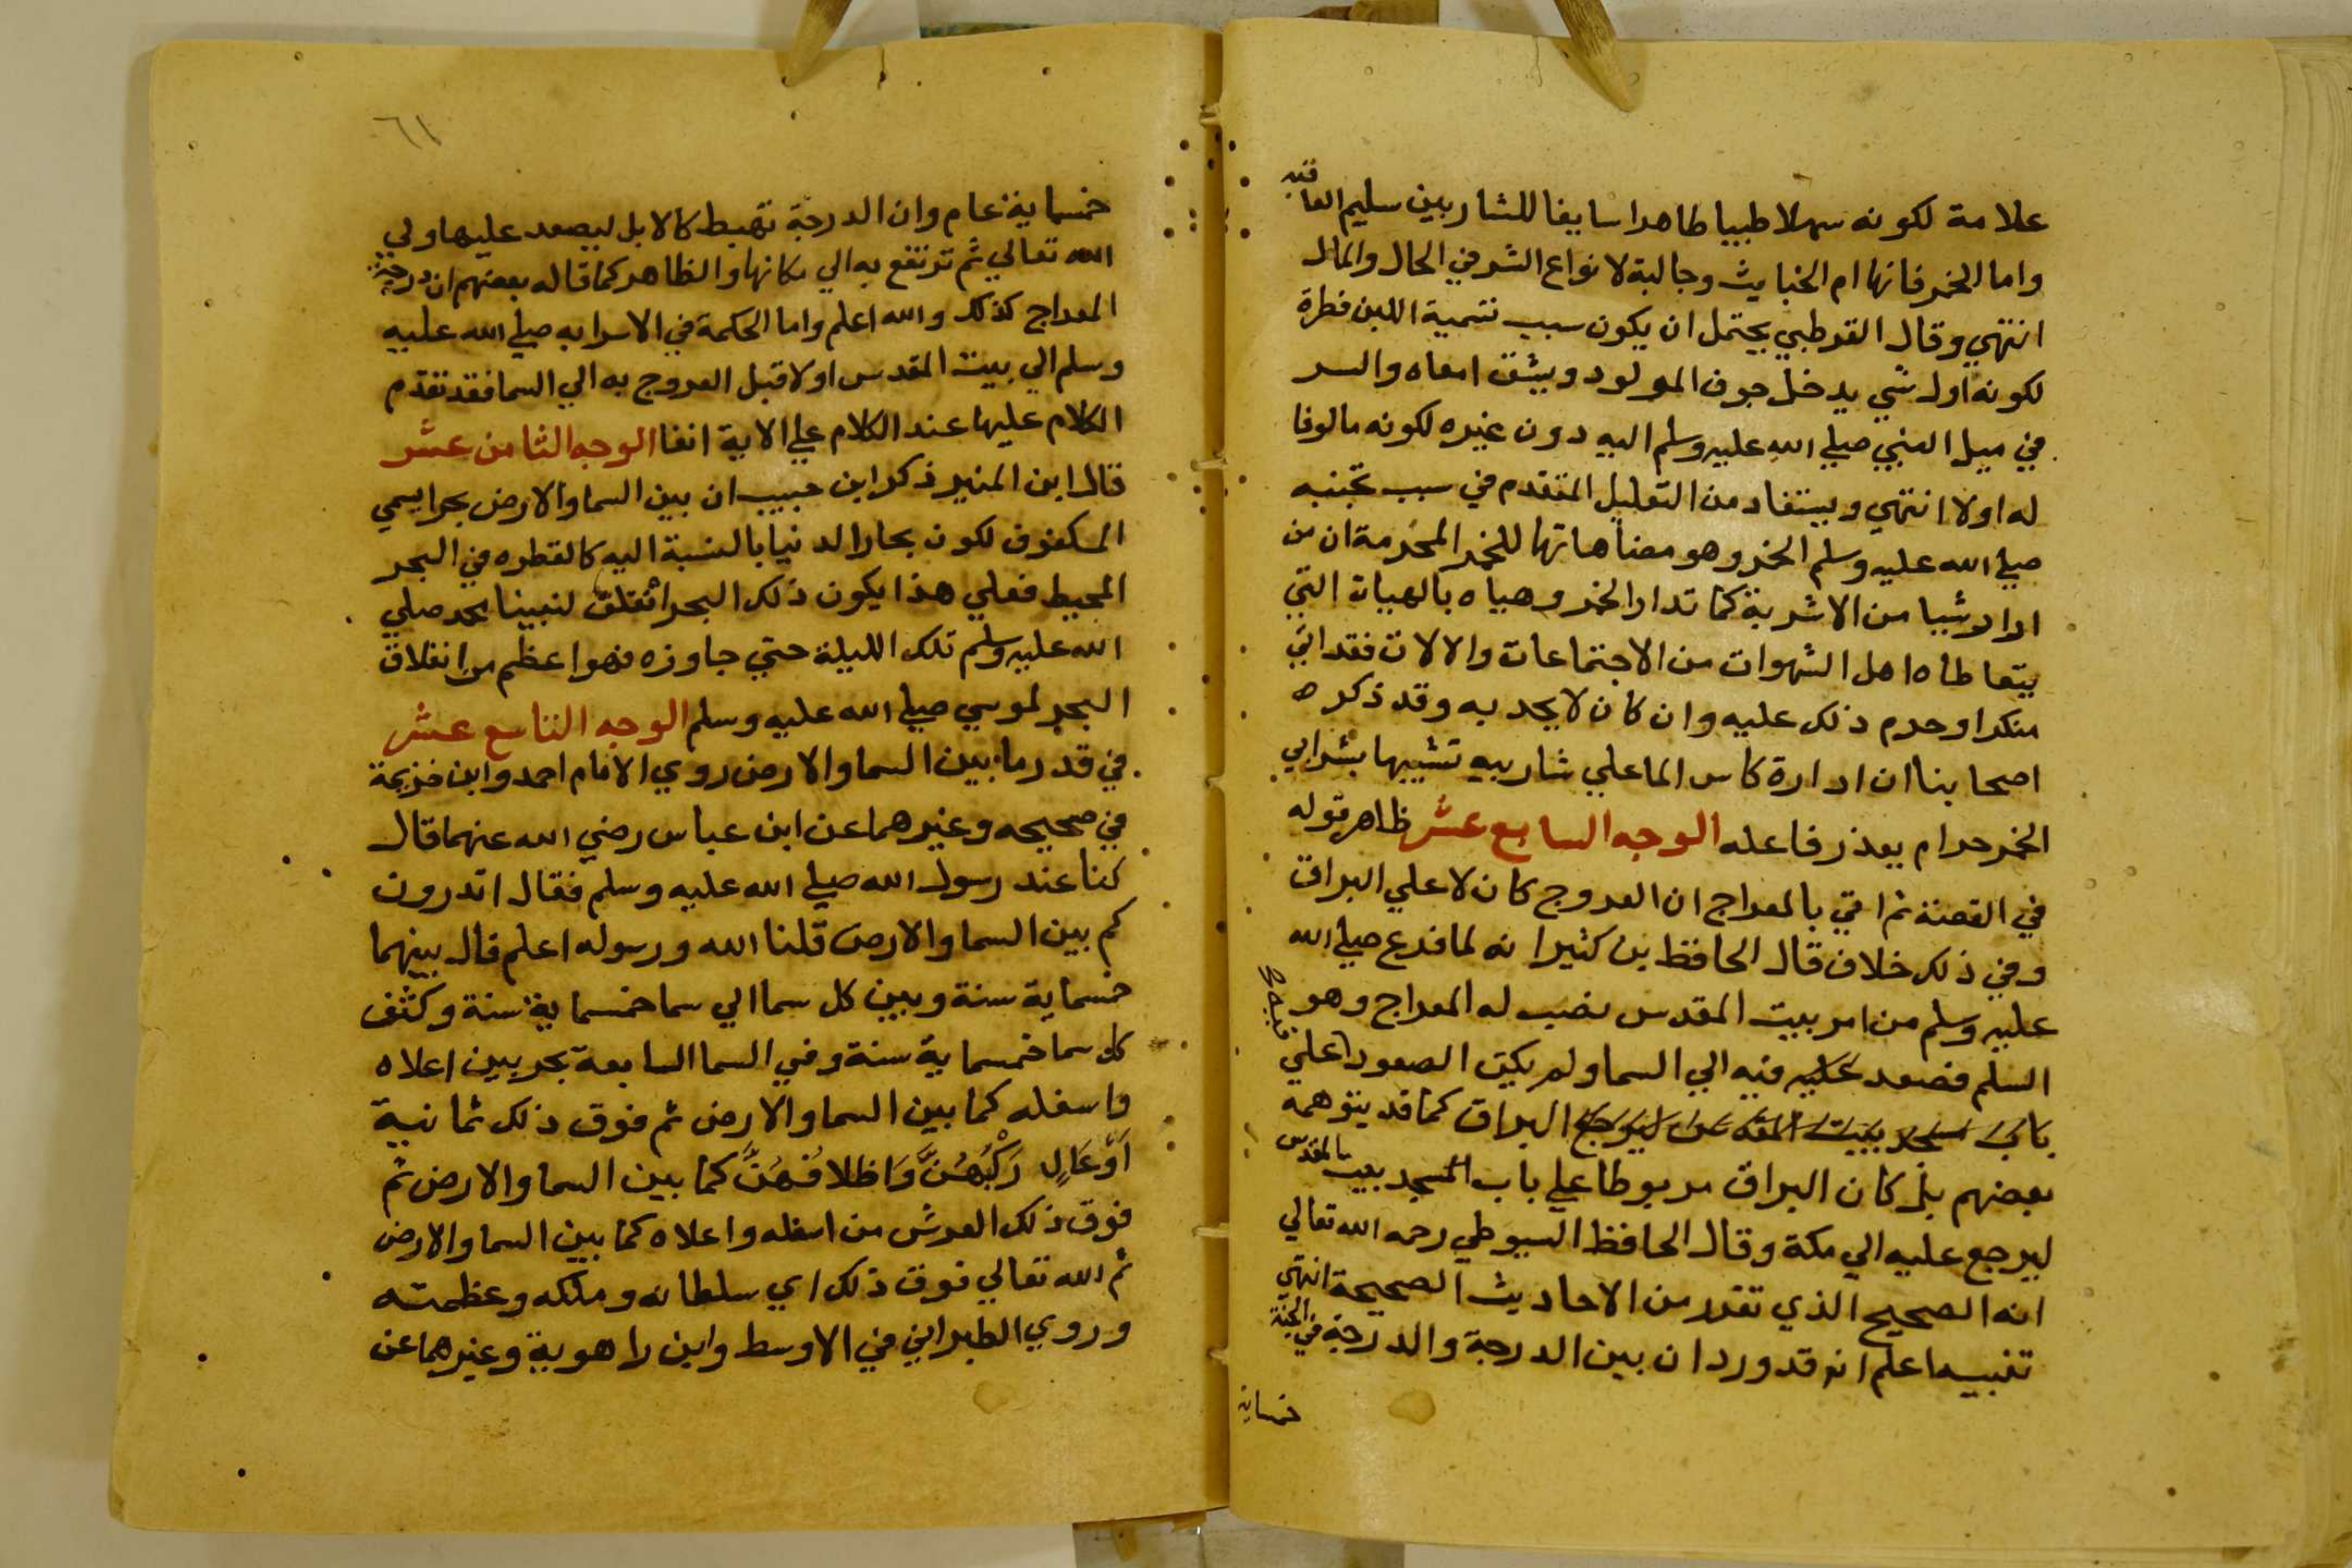 علامة لكونه سهلا طيبا طاهرا سايغا للشاربين سليم العاقبه
واما الخمر فانها ام الخبايث وجالبة لانواع الشر في الحال والمال
انتهي وقال القرطبي يحتمل ان يكون سبب تسمية اللبن فطرة
لكونه اول شي يدخل جوف المولود ويشق امعاه والسر
في ميل النبي صلي الله عليه وسلم اليه دون غيره لكونه مالوفا
له اولا انتهي ويستفاد من التعليل المتقدم في سبب تجنبه
صلي الله عليه وسلم الخمر وهو مضاهاتها للخمر المحرمة ان من
ادار شيا من الاشربة كما تدار الخمر وهياه بالهيات التي
يتعاطاه اهل الشهوات من الاجتماعات والالات فقد اتي
منكرا وحرم ذلك عليه وان كان لا يحد به وقد ذكره
اصحابنا ان ادارة كاس الما علي شاربيه تشبيها بشرابي
الخمر حرام يعذر فاعله الوجه السابع عشر ظاهر قوله
في القصة ثم اتي بالمعراج ان العروج كان لا علي البراق
وفي ذلك خلاف قال الحافظ بن كثير انه لما فرغ صلي الله
عليه وسلم من امر بيت المقدس نصب له المعراج وهو
السلم فصعد عليه فيه الي السما ولم يكن الصعود علي
باب مسجد بيت المقدس ليرجع البراق كما قد يتوهمه
بعضهم بل كان البراق مربوطا علي باب المسجد ببيت المقدس
ليرجع عليه الي مكة وقال الحافظ السيوطي رحمه الله تعالي
انه الصحيح الذي تقرر من الاحاديث الصحيحة انتهي
تنبيه اعلم انه قد ورد ان بين الدرجة والدرجة في الجنة
خمسماية
٦١
خمسماية عام وان الدرجة تهبط كالابل ليصعد عليها ولي
الله تعالي ثم ترتفع به الي مكانها والظاهر كما قاله بعضهم ان درجة
المعراج كذلك والله اعلم واما الحكمة في الاسرا به صلي الله عليه
وسلم الي بيت المقدس اولا قبل العروج به الي السما فقد تقدم
الكلام عليها عند الكلام علي الاية انفا الوجه الثامن عشر
قال ابن المنير ذكر ابن حبيب ان بين السما والارض بحرا يسمي
المكفوف لكون بحار الدنيا بالنسبة اليه كالقطره في البحر
المحيط فعلي هذا يكون ذلك البحر انفلق لنبينا محمد صلي
الله عليه وسلم تلك الليلة حتي جاوزه فهو اعظم من انفلاق
البحر لموسي صلي الله عليه وسلم الوجه التاسع عشر
في قدر ما بين السما والارض روي الامام احمد وابن خزيمة
في صحيحه وغيرهما عن ابن عباس رضي الله عنهما قال
كنا عند رسول الله صلي الله عليه وسلم فقال اتدرون
كم بين السما والارض قلنا الله ورسوله اعلم قال بينهما
خمسماية سنة وبين كل سما الي سما خمسماية سنة وكثف
كل سما خمسماية سنة وفي السما السابعة بحر بين اعلاه
واسفله كما بين السما والارض ثم فوق ذلك ثمانية
اَوْعَالٍ رَكْبُهُنَّ وَاظلافُهُنَّ كما بين السما والارض ثم
فوق ذلك العرش من اسفله واعلاه كما بين السما والارض
ثم الله تعالي فوق ذلك اي سلطانه وملكه وعظمته
وروي الطبراني في الاوسط وابن راهوية وغيرهما عن